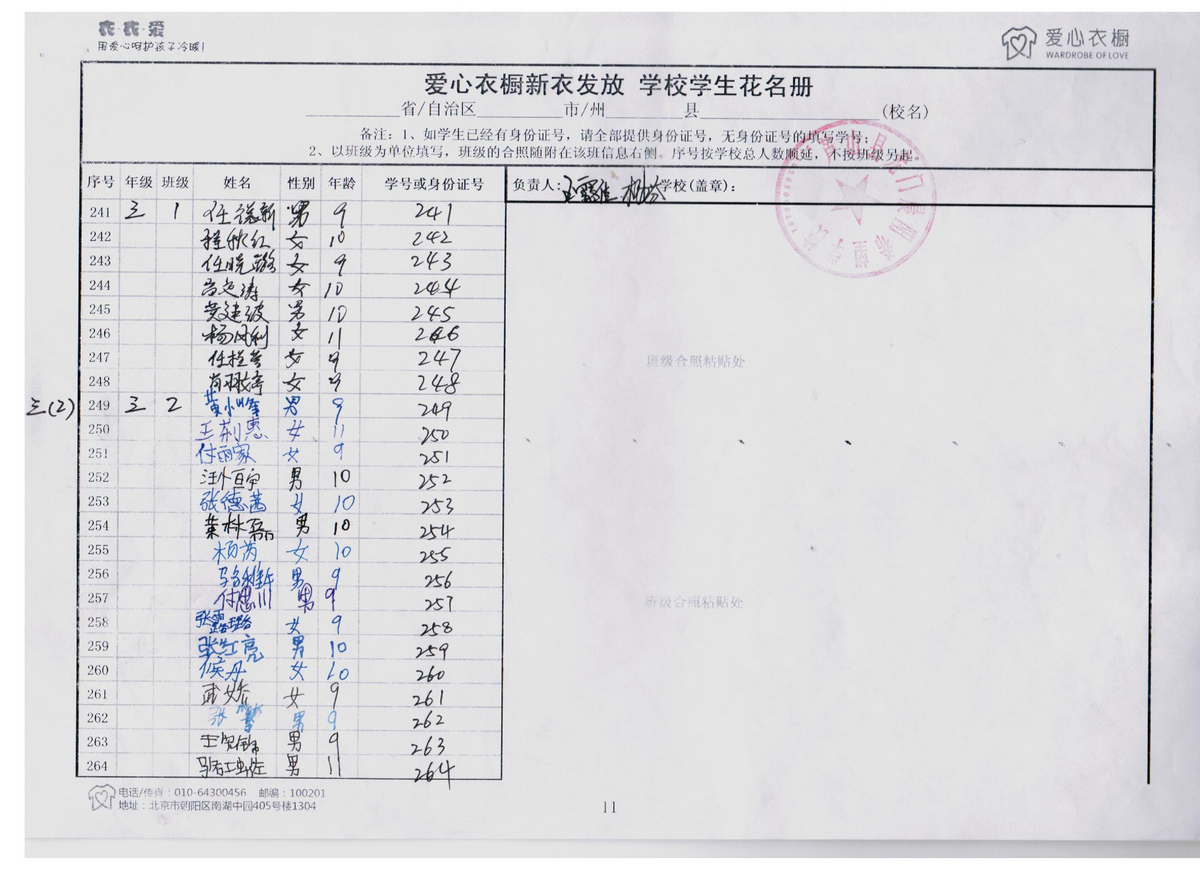 衣·衣·爱
用爱心呵护孩子冷暖!
爱心衣橱
WARDROBE OF LOVE
爱心衣橱新衣发放 学校学生花名册
省/自治区 市/州 县 (校名)
备注:1、如学生已经有身份证号,请全部提供身份证号,无身份证号的填写学号;
2、以班级为单位填写,班级的合照随附在该班信息右侧。序号按学校总人数顺延,不按班级另起。
序号 年级 班级 姓名 性别 年龄 学号或身份证号 负责人: 学校(盖章):
241 三 1 任新 男 9 241
242 程秋红 女 10 242
243 任晓 女 9 243
244 涛 女 10 244
245 建波 男 10 245
246 杨凤利 女 11 246
247 任 女 9 247
248 肖 女 9 248
三(2) 249 三 2 黄小峰 男 9 249
250 王荆惠 女 11 250
251 付丽家 女 9 251
252 汪 男 10 252
253 张德茜 女 10 253
254 叶林 男 10 254
255 杨芮 女 10 255
256 马 男 9 256
257 付思川 男 9 257
258 张露 女 9 258
259 张红亮 男 10 259
260 侯丹 女 10 260
261 武娇 女 9 261
262 张 男 9 262
263 王贺锦 男 9 263
264 马 男 11 264
班级合照粘贴处
班级合照粘贴处
电话/传真:010-64300456 邮编:100201
地址:北京市朝阳区南湖中园405号楼1304
11